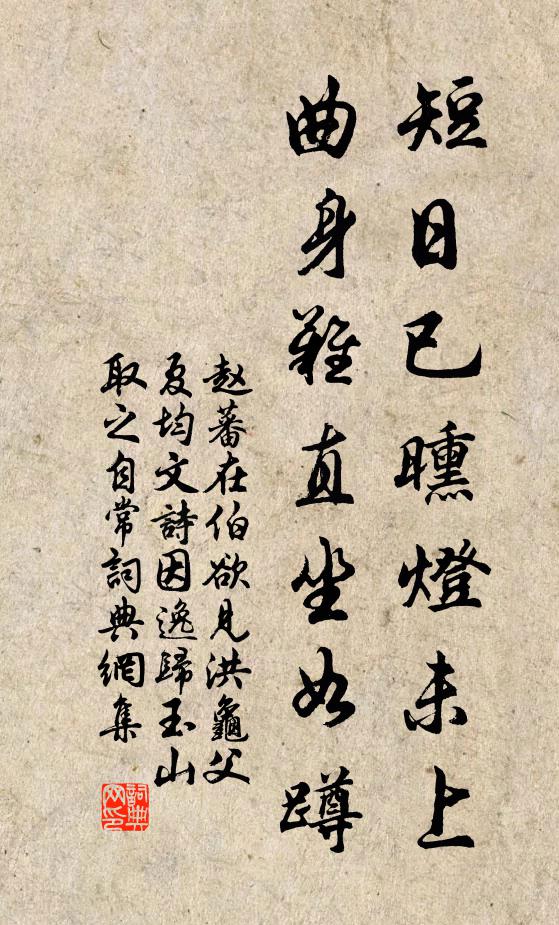 短日已曛燈未上
曲身難直坐如蹲
赵蕃在伯欲見洪龜父
夏均文詩因逸歸玉山
取之自常詞典網集
詞典
网印